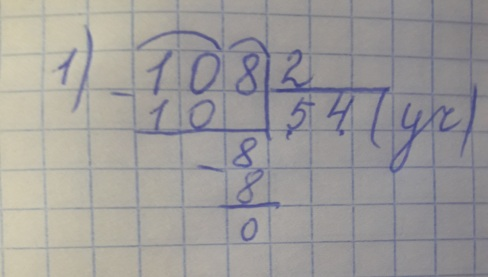 1) 108 2
- 10 54 (уч)
- 8
8
0